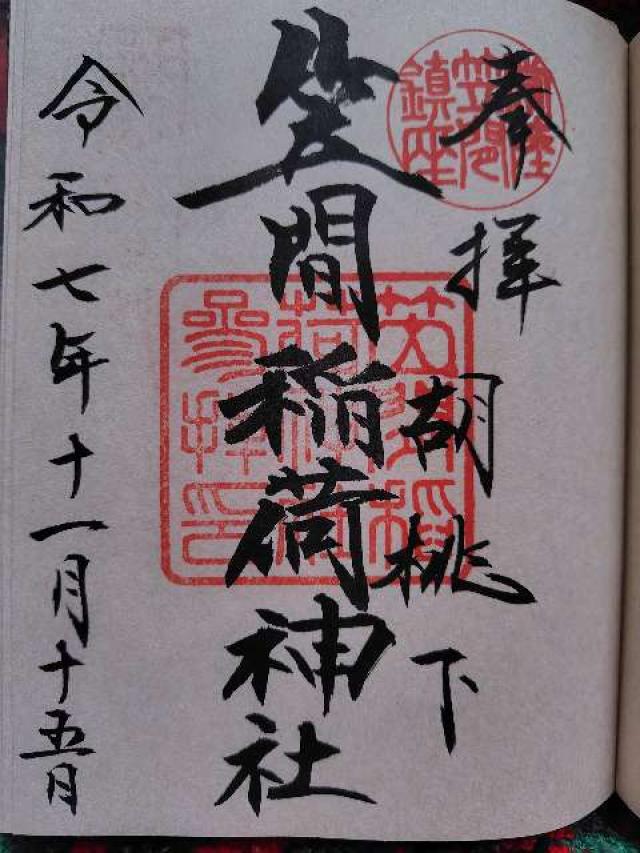 奉拝
胡桃下
常陸
笠間
鎮座
笠間稲荷神社
笠間稲
荷神社
参拝印
令和七年十一月十五日